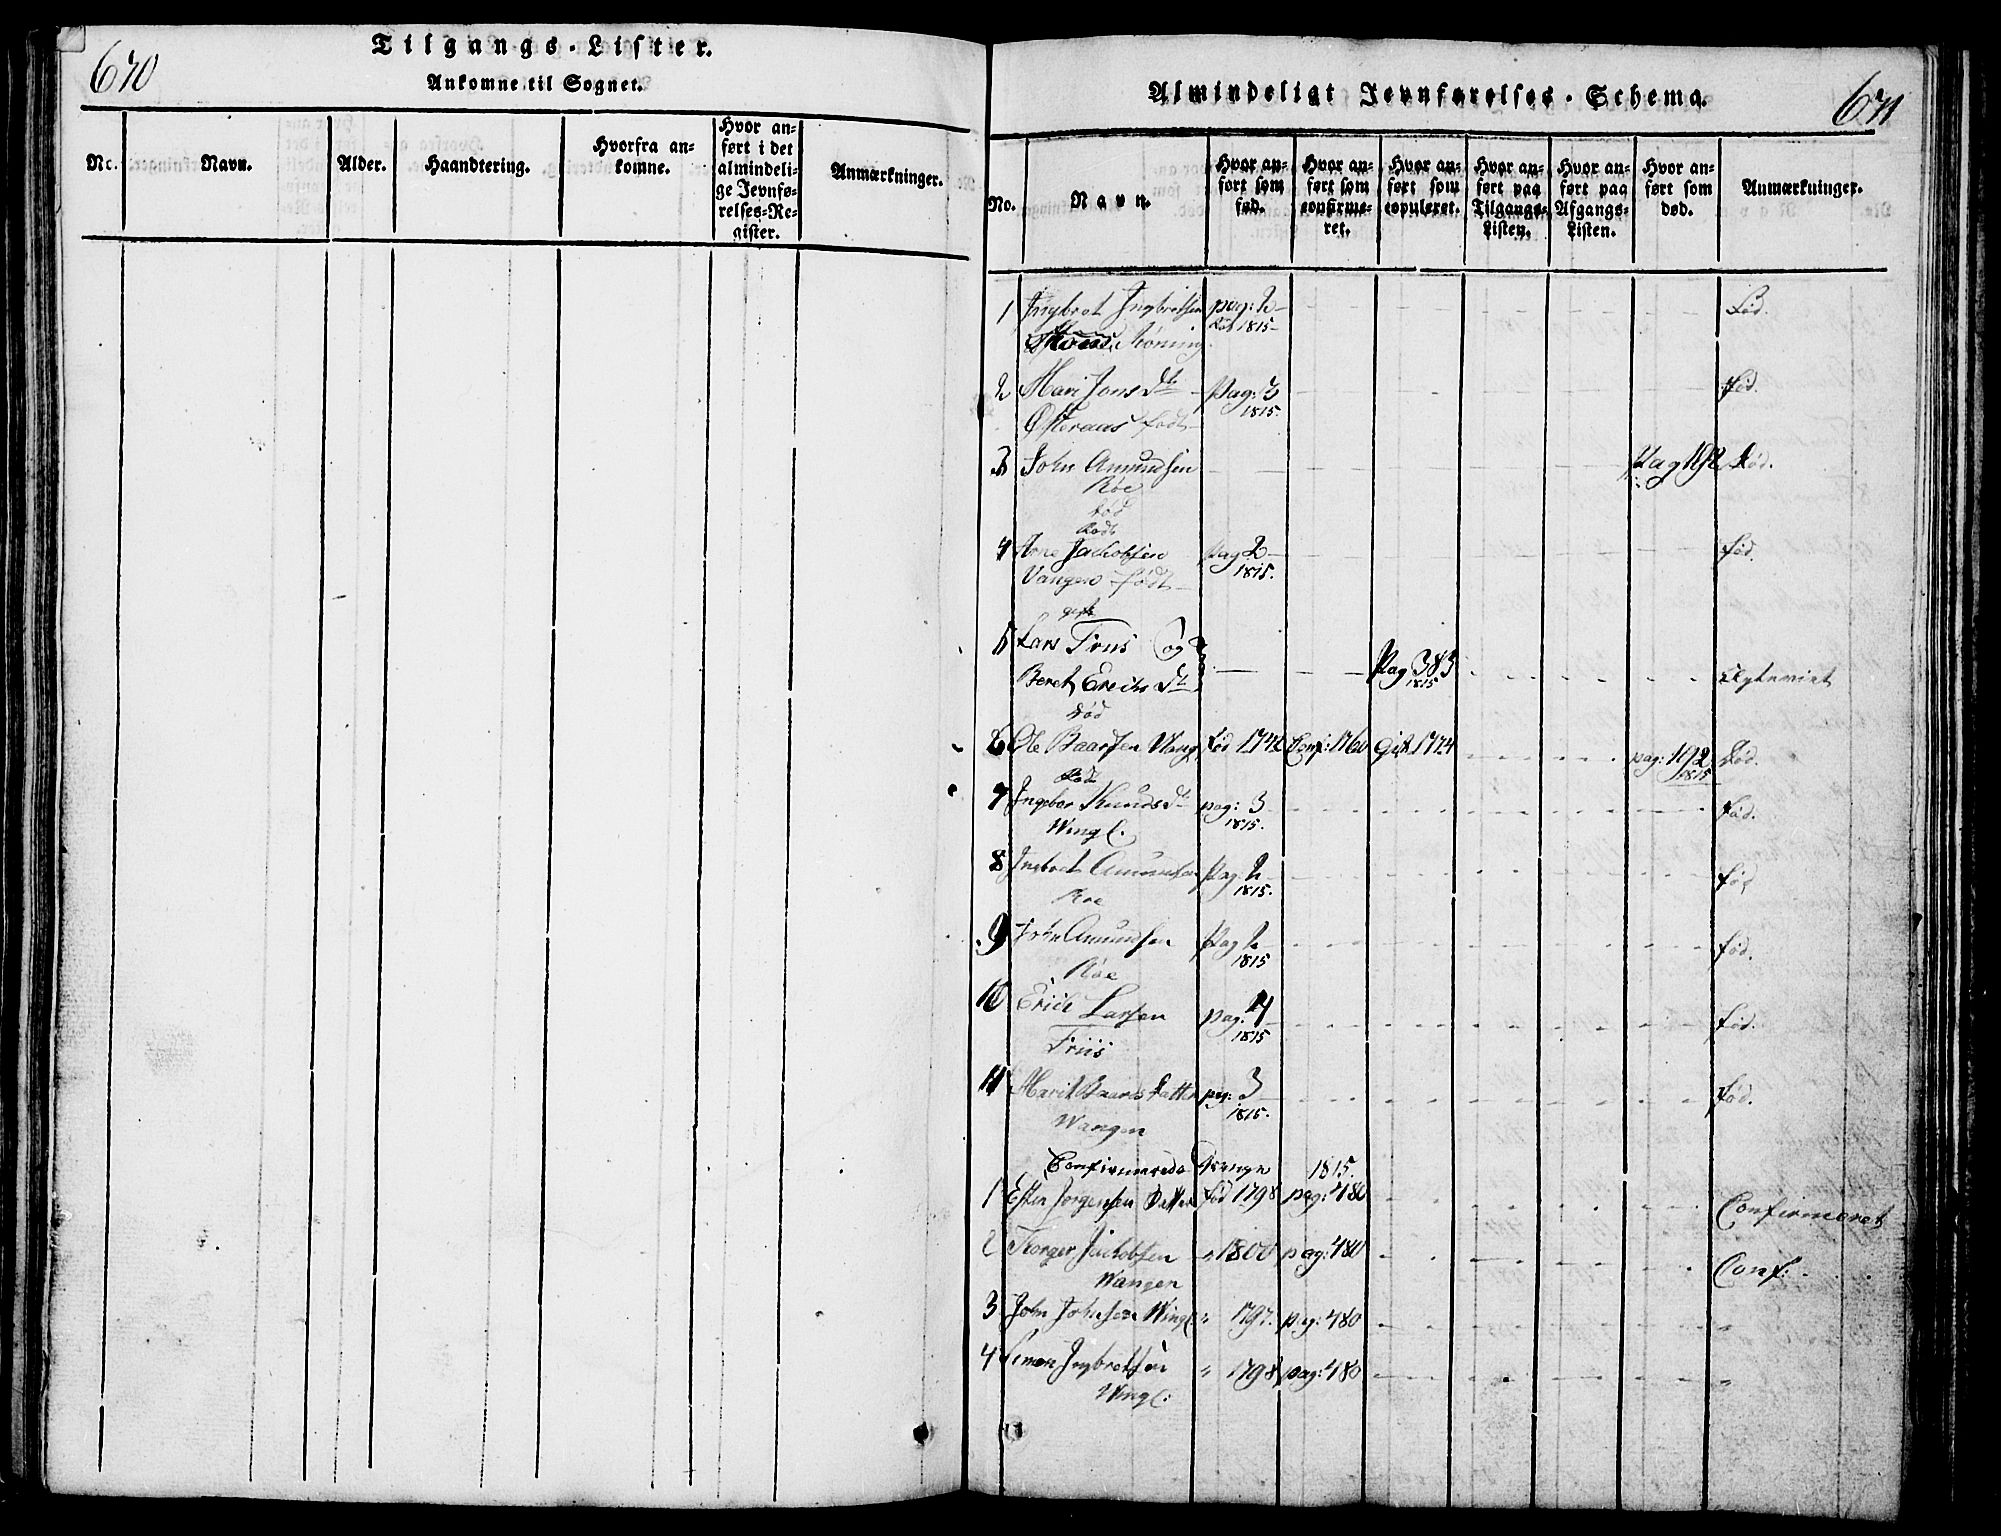 670
Tilgangs-Lister.
Ankomne til Sognet.
No. Navn. Alder. Haandtering. Hvorfra ankomne. Hvor anført i det almindelige Jevnførelses-Register. Anmærkninger.
Almindeligt Jevnførelses-Schema.
671
No. Navn. Hvor anført som fød. Hvor anført som confirmeret. Hvor anført som copuleret. Hvor anført paa Tilgangs-Listen. Hvor anført paa Afgangs-Listen. Hvor anført som død. Anmærkninger.
1 Ingbret Ingbretsen pag: 2 Fød.
1815
2 Mari Jons Dt Pag: 3 Fød.
Østeraas født 1815.
3 John Amundsen Pag 192 Død.
Røe
død
4 Arne Jachobsen Pag 2 fød.
Vangen født 1815.
gift
5 Lars Friis og
Beret Erichs Dt Pag 383 Egteviet
1815
død
6 Ole Baarsen Wang fød 1742 Conf: 1760 Gift 1774 pag: 192 Død.
1815
7 Ingebor Knuds Dt pag: 3 fød.
Wingl. 1815.
8 Ingbret Amundsen Pag 2 fød
Røe 1815.
9 John Amundsen Pag 2 fød.
Røe 1815
10 Erich Larsen pag: 4 fød.
Friis 1815
11 Marit Baards Datter pag: 3 fød.
Wangen 1815.
Confirmerede Drenge 1815.
1 Esten Jørgensen fød 1798 pag: 480 Confirmeret
2 Torger Jachobsen " 1800 pag: 480 Conf:
Wangen
3 John Johnsen Wingl: " 1797. pag: 480 "
4 Simen Ingbretsen " 1798 pag: 480 "
Wingl: